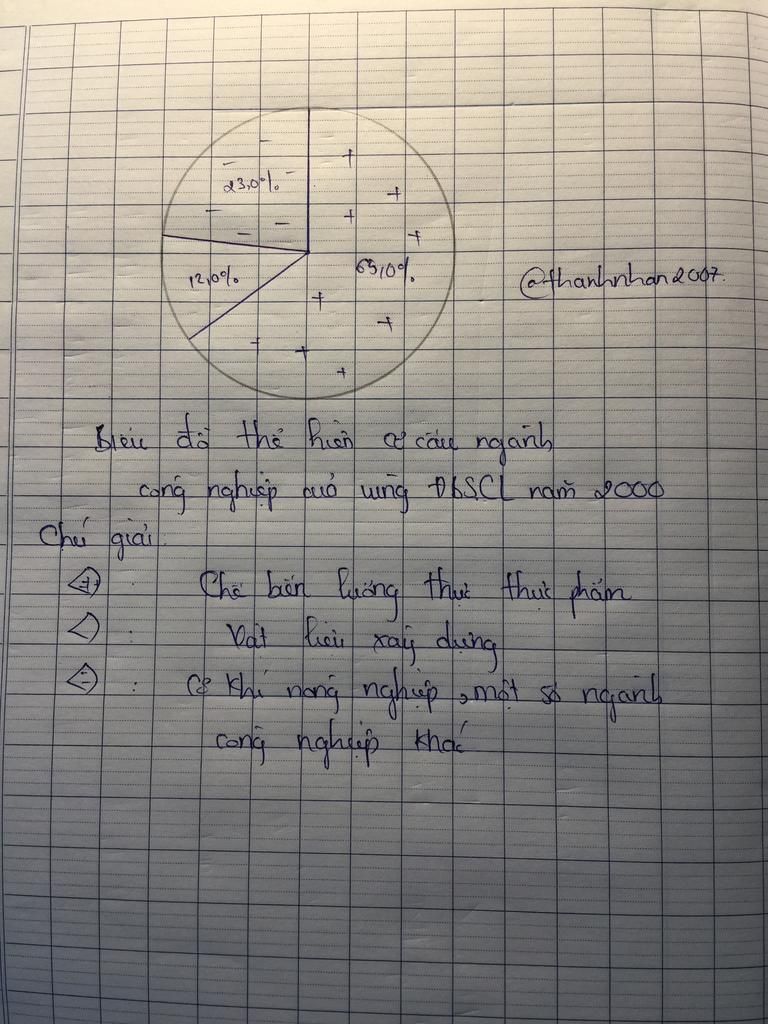 23,0%
12,0%
65,0%
@thanhnhan2007.
Biểu đồ thể hiện cơ cấu ngành
công nghiệp của vùng ĐBSCL năm 2000
Chú giải:
+ + : Chế biến lương thực thực phẩm
: Vật liệu xây dựng
- : Cơ khí nông nghiệp, một số ngành
công nghiệp khác